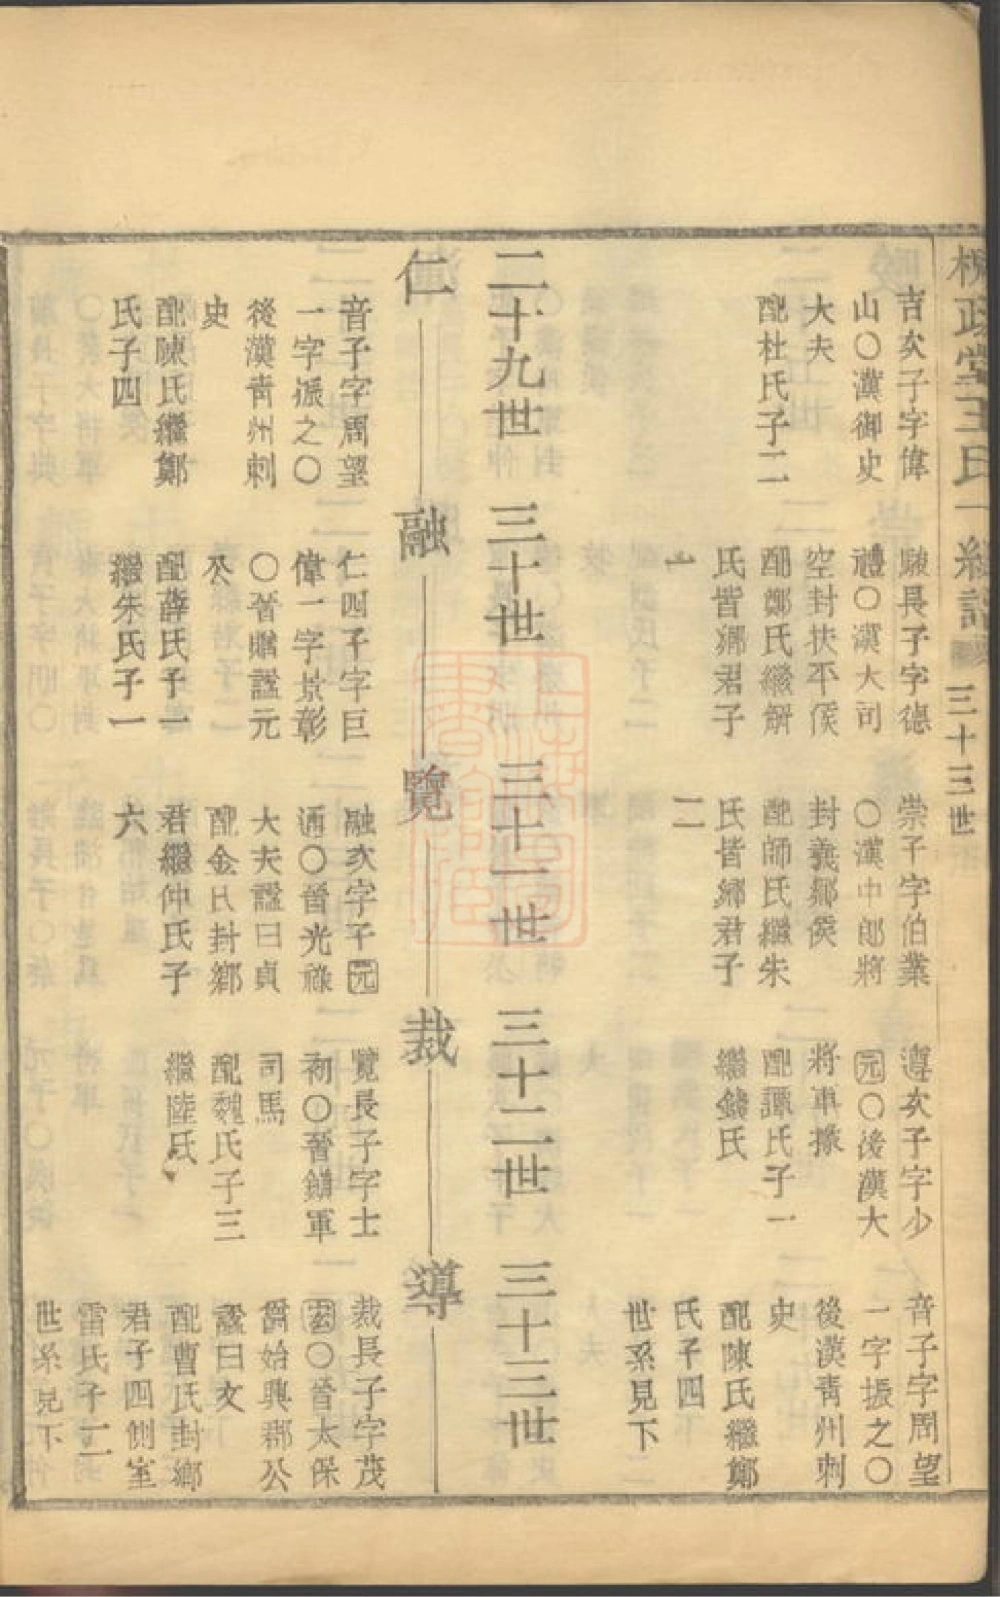 王氏
三十三世
吉次子字偉
山○漢御史
大夫
配杜氏子二
駿長子字德
禮○漢大司
空封扶平侯
配鄭氏繼解
氏皆鄉君子
一
崇子字伯業
○漢中郎將
封義鄉侯
配師氏繼朱
氏皆鄉君子
二
遵次子字少
元○後漢大
將軍掾
配譚氏子一
繼錢氏
音子字周望
一字振之○
後漢青州刺
史
配陳氏繼鄭
氏子四
世系見下
二十九世
三十世
三十一世
三十二世
三十三世
仁
融
覽
裁
導
音子字周望
一字振之○
後漢青州刺
史
配陳氏繼鄭
氏子四
仁四子字巨
偉一字景彰
○晉贈諡元
公
配薛氏子一
繼朱氏子一
融次字子元
通○晉光祿
大夫諡曰貞
配金氏封鄉
君繼仲氏子
六
覽長子字士
初○晉鎮軍
司馬
配魏氏子三
繼陸氏
裁長子字茂
宏○晉太保
爵始興郡公
諡曰文
配曹氏封鄉
君子四側室
雷氏子二
世系見下